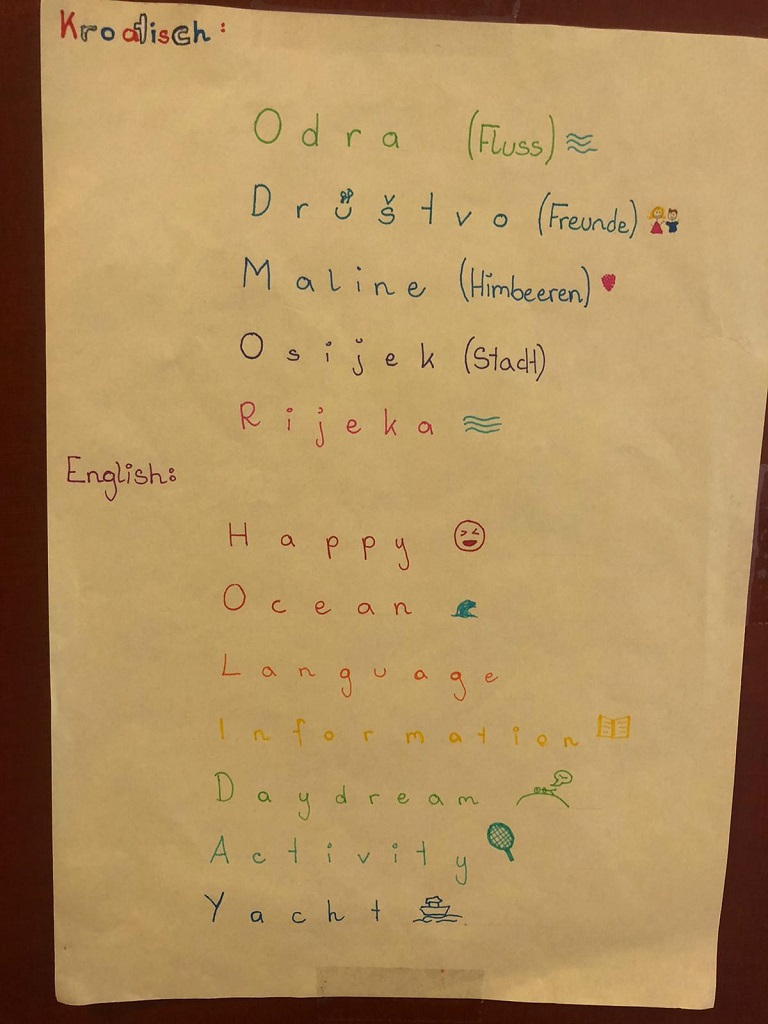 Kroatisch:
Odra (Fluss)
Društvo (Freunde)
Maline (Himbeeren)
Osijek (Stadt)
Rijeka
English:
Happy
Ocean
Language
Information
Daydream
Activity
Yacht